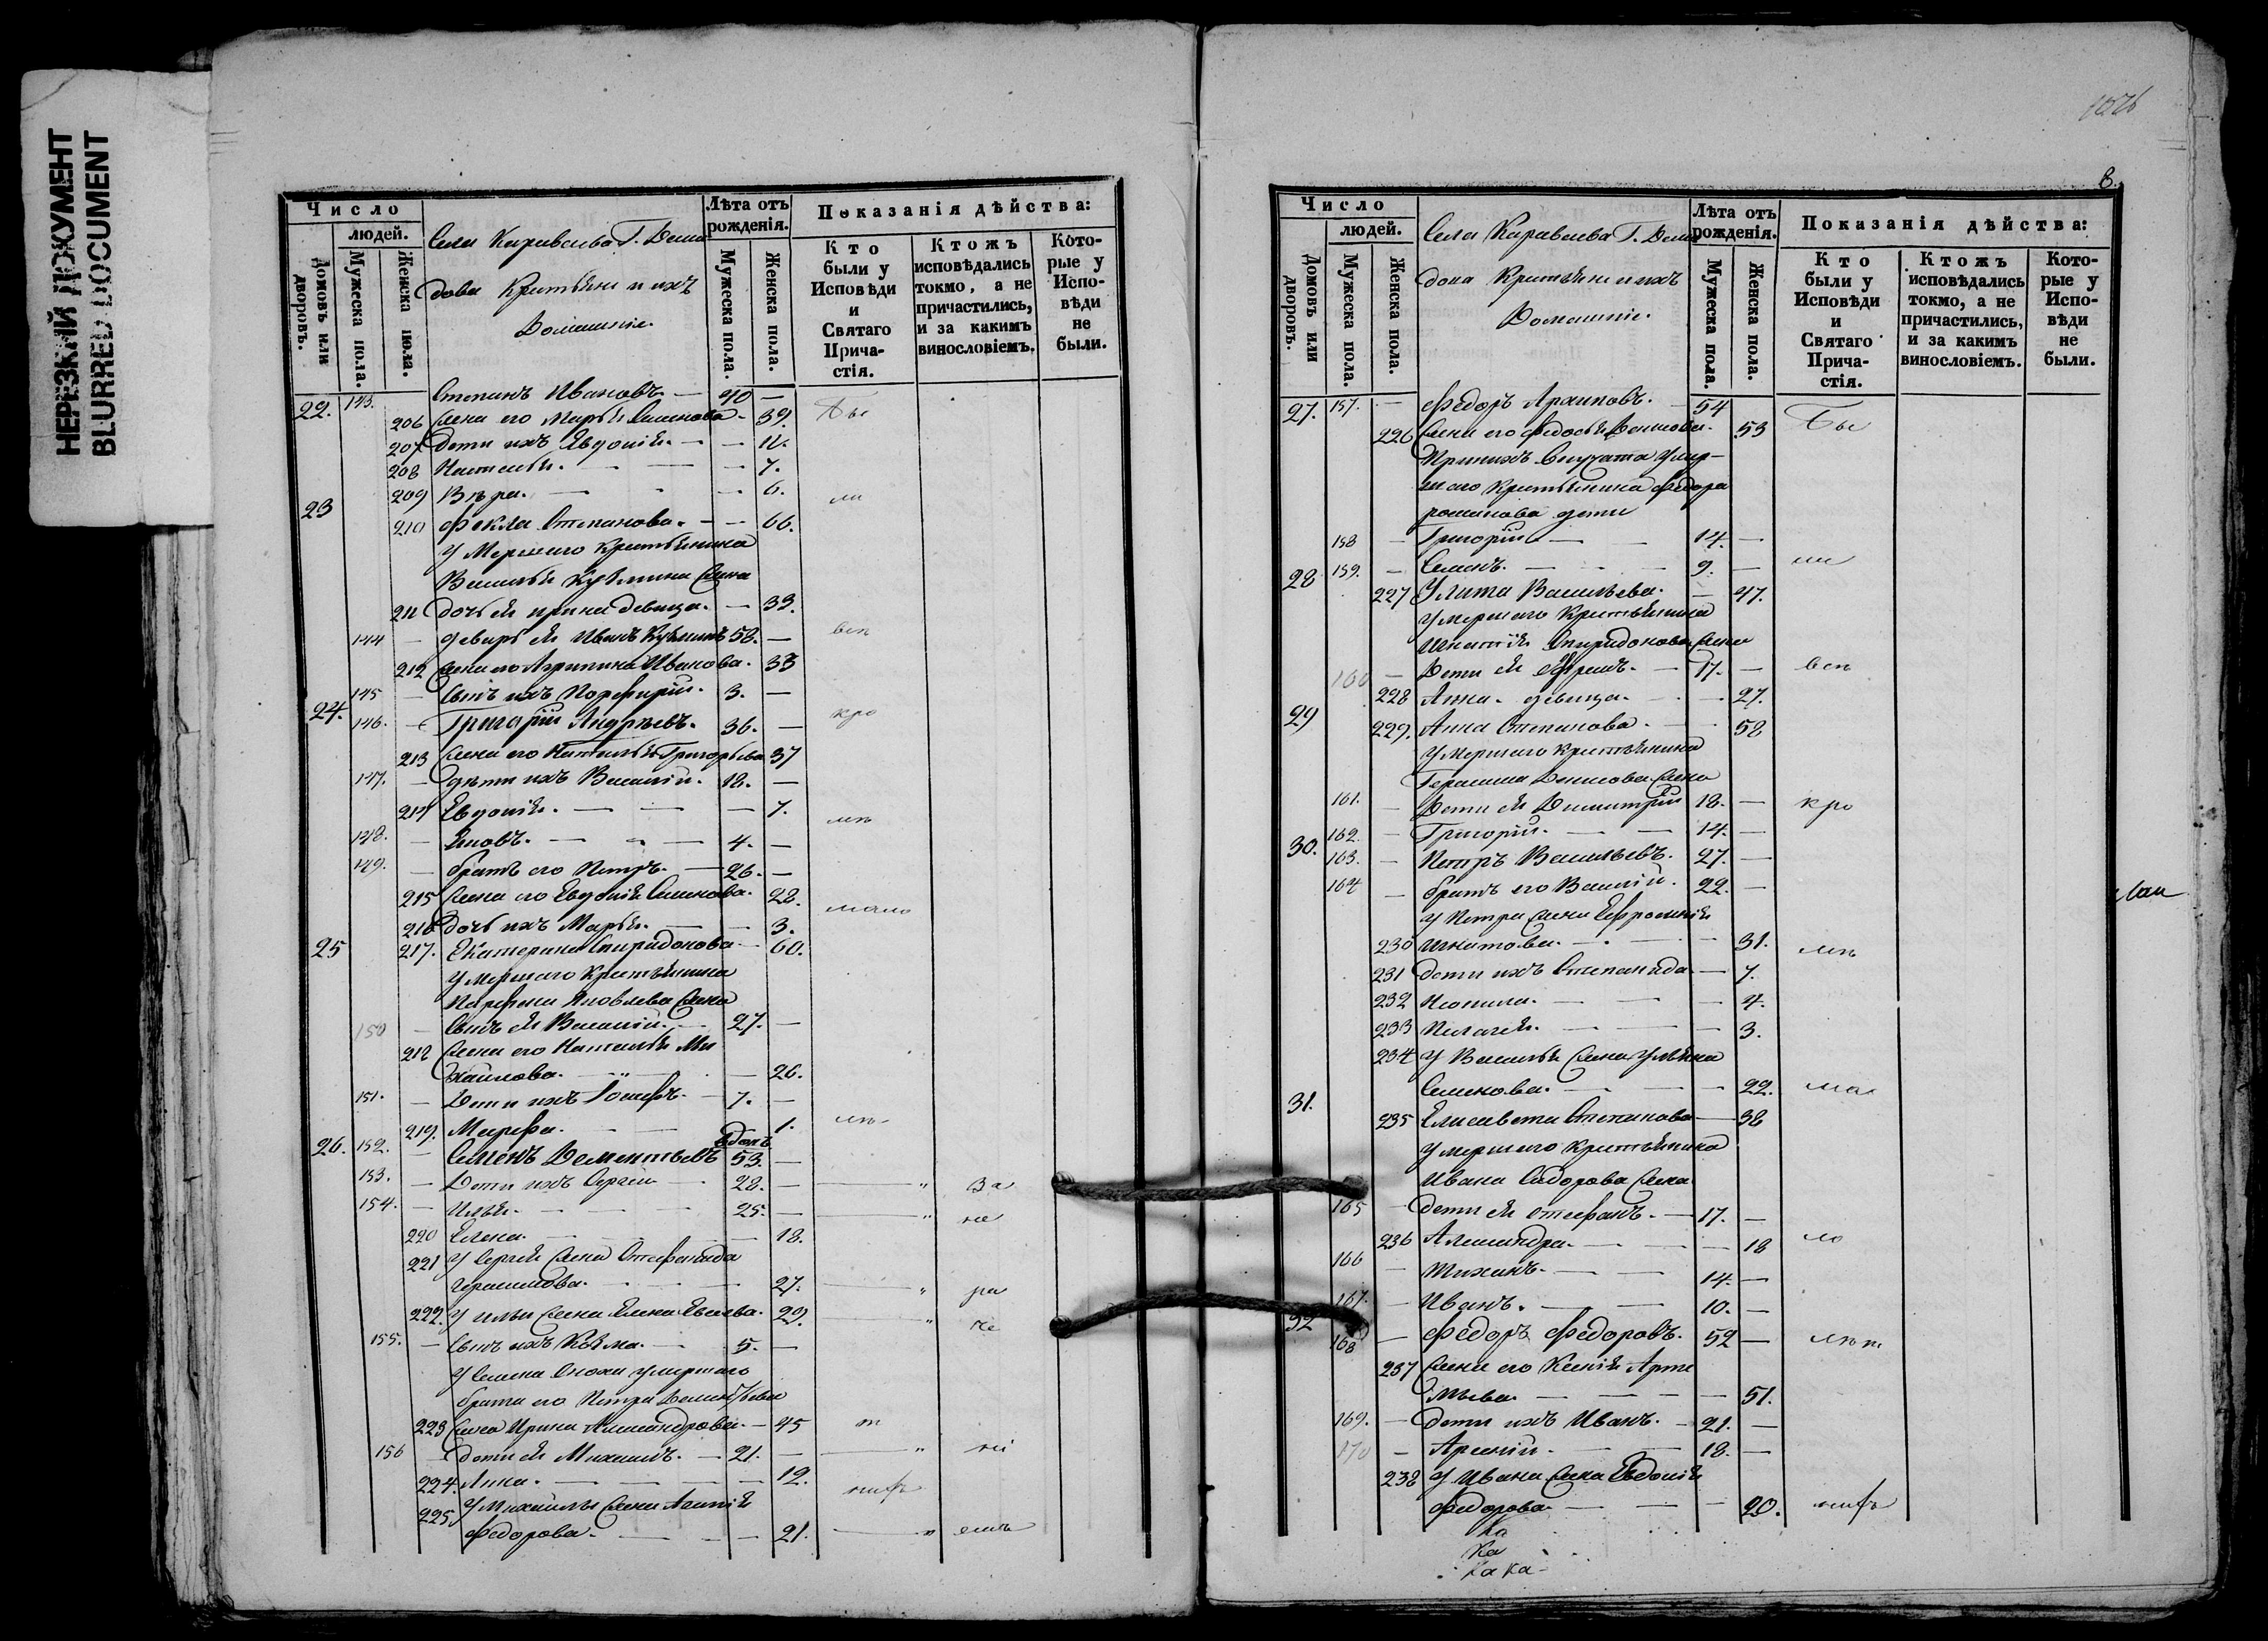 НЕРЕЗКИЙ ДОКУМЕНТ
BLURRED DOCUMENT
Число
людей.
Домовъ или дворовъ.
Мужеска пола.
Женска пола.
Села Караваева Г. Дема
дова Крестьяни и ихъ
Домашніе.
Лѣта отъ рожденія.
Мужеска пола.
Женска пола.
Показанія дѣйства:
Кто были у Исповѣди и Святаго Причастія.
Ктожъ исповѣдались токмо, а не причастились, и за какимъ винословіемъ.
Которые у Исповѣди не были.
22. 143. Степанъ Ивановъ. — 40 —
206 Жена его Марья Семенова — 39. Бы
207 Дети ихъ Евдокія. — — 12
208 Наталья. — — — 7.
209 Вѣра. — — 6. ли
23 210 Фекла Степанова. — — 66.
Умершаго Крестьянина
Василья Кузмина Жена
211 дочь ея Ирина девица. — 33.
144 — деверь ея Иванъ Кузминъ 58. — всѣ
212 Жена его Агрипина Иванова. 33
145 — Сынъ ихъ Порфирій. 3. —
24. 146. — Григорій Андреевъ. 36. — кро
213 Жена его Наталья Григорьева 37
147. — Дѣти ихъ Василій. 12. —
214 Евдокія. — — — 7.
148. — Яковъ. — — 4. — мѣ
149. — братъ его Петръ. — 26. —
215 Жена его Евдокія Семенова. 22.
216 дочь ихъ Марья. — 3. мало
25 217. Екатерина Спиридонова — 60.
Умершаго Крестьянина
Парфена Яковлева Жена
150 — Сынъ ея Василій. — 27. —
218 Жена его Наталья Ми
хайлова. — — 26.
151. — Дети ихъ Іосифъ. — 7. —
219. Марфа. — — 1. лѣ-
26. 152. — Семенъ Дементьевъ вдовъ 53. —
153. — Дети ихъ Сергѣй — 28. — — " За
154. — Илья. — — 25. — — " не
220 Елена. — — — 18.
221 У Сергея Жена Степанида
Герасимова. — — — 27. — " ра
222. У Ильи Жена Елена Евсеева. 29. — " че
155. — Сынъ ихъ Козма. — 5. —
У Семена Сноха умершаго
брата его Петра Дементьева
223 Жена Ирина Александрова. — 45 т
156 — Дети ея Михаилъ. — 21. — — " ні
224. Анна. — — — 12. нихъ
225. У Михаила Жена Агапія
Федорова. — — — 21. — " емъ
8.
Число
людей.
Домовъ или дворовъ.
Мужеска пола.
Женска пола.
Села Караваева Г. Деми
дова Крестьяни и ихъ
Домашніе.
Лѣта отъ рожденія.
Мужеска пола.
Женска пола.
Показанія дѣйства:
Кто были у Исповѣди и Святаго Причастія.
Ктожъ исповѣдались токмо, а не причастились, и за какимъ винословіемъ.
Которые у Исповѣди не были.
27. 157. — Федоръ Архиповъ. 54
226 Жена его Федосья Денисова. 53 Бы
При нихъ внучата умер-
шаго Крестьянина Федора
романова дети
158 — Григорій — — 14. —
159. — Семенъ. — — 9. — ли
28 227 Улита Васильева. — 47.
умершаго Крестьянина
Игнатія Спиридонова Жена
160 — Дети ея Ефремъ. — 17. — всѣ
228 Анна девица. — — 27.
29 229. Анна Степанова. — 58
Умершаго Крестьянина
Герасима Денисова Жена
161. — Дети ея Димитрій 18. — кро
162. — Григорій. — — 14. —
30. 163. — Петръ Васильевъ. 27. —
164 — братъ его Василій. 22. —
У Петра Жена Ефросинія
230 Игнатова. — — 31. мѣ
231 Дети ихъ Степанида — 7.
232 Неонила. — — — 4.
233 Пелагея. — — — 3.
234 У Василья Жена Ульяна
Семенова. — — — 22. мал
31. 235 Елисавета Степанова — 38
умершаго Крестьянина
Ивана Сидорова Жена
165 — Дети ея Стефанъ. — 17. —
236 Александра. — — 18 ло
166 — Тихонъ. — — 14. —
167. — Иванъ. — — 10. —
32 168 — Федоръ Федоровъ. 52 — лѣт
237 Жена его Ксенія Арте
мьева. — — — 51.
169. — дети ихъ Иванъ. — 21. —
170 — Арсеній. — — 18. —
238 У Ивана Жена Евдокія
Федорова. — — — 20. нихъ
Ка
Ка
Кака